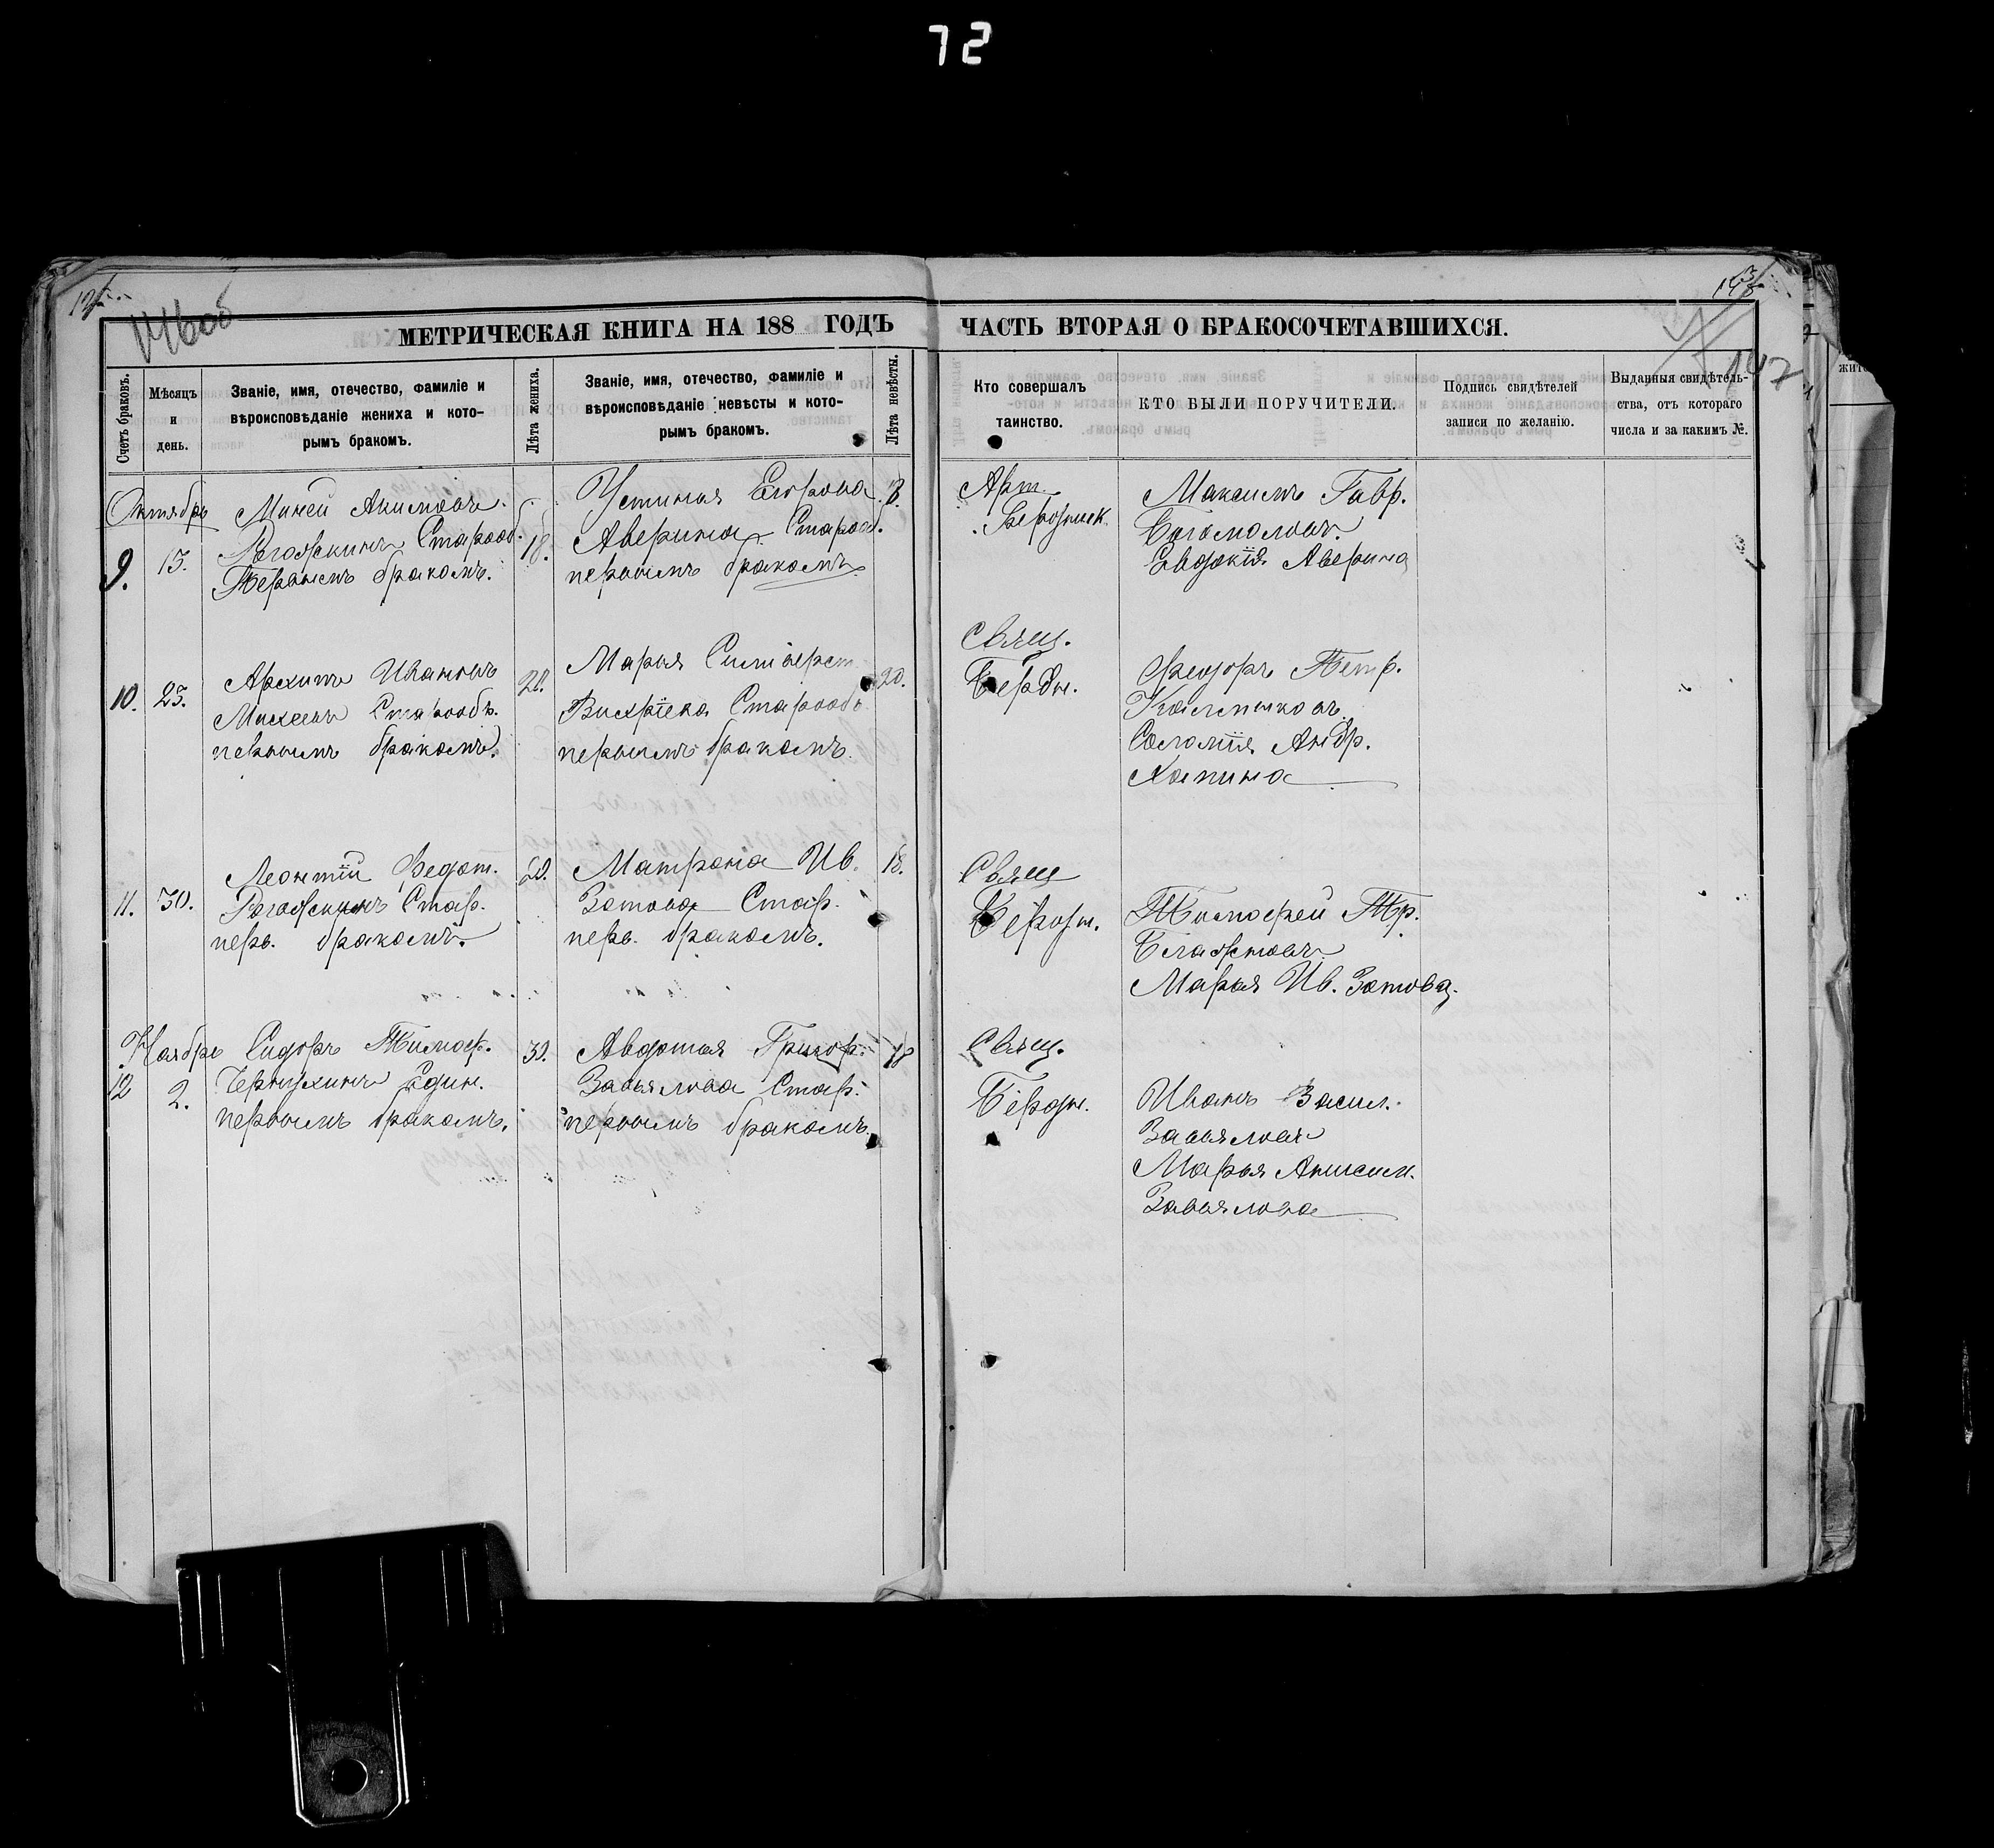 72
146об
147
МЕТРИЧЕСКАЯ КНИГА НА 188 ГОДЪ
ЧАСТЬ ВТОРАЯ О БРАКОСОЧЕТАВШИХСЯ.
Счетъ браковъ.
Мѣсяцъ и день.
Званіе, имя, отечество, фамиліе и
вѣроисповѣданіе жениха и кото-
рымъ бракомъ.
Лѣта жениха.
Званіе, имя, отечество, фамиліе и
вѣроисповѣданіе невѣсты и кото-
рымъ бракомъ.
Лѣта невѣсты.
Кто совершалъ
таинство.
КТО БЫЛИ ПОРУЧИТЕЛИ.
Подпись свидѣтелей
записи по желанію.
Выданныя свидѣтель-
ства, отъ котораго
числа и за какимъ №.
Октябрь
9.
Миней Акимовъ
Рогожкинъ Старооб.
Первымъ бракомъ.
18.
Устинья Егорова
Аверина Старооб.
первымъ бракомъ.
Максимъ Гавр.
Богомоловъ.
Евдокія Аверина
10.
25.
Архипъ Ивановъ
Михеевъ Старообъ.
первымъ бракомъ.
Марья
Старообъ
первымъ бракомъ.
20.
Свящ.
Бердн.
Федоръ Петр.
Калмыковъ
Соломія Андр.
Хапина
11.
30.
Леонтій Федот.
Рогожкинъ Стар.
перв. бракомъ.
20.
Матрона Ив.
Зотова Стар.
перв. бракомъ.
18.
Свящ
Тимофей
Марья Ив. Зотова.
Ноябрь
12
2.
Сидоръ Тимоф.
Чернухинъ Един.
первымъ бракомъ.
30.
Авдотья Григор.
Завьялова Стар.
первымъ бракомъ.
18
Свящ.
Иванъ Васил.
Завьяловъ
Марья Анисим.
Завьялова